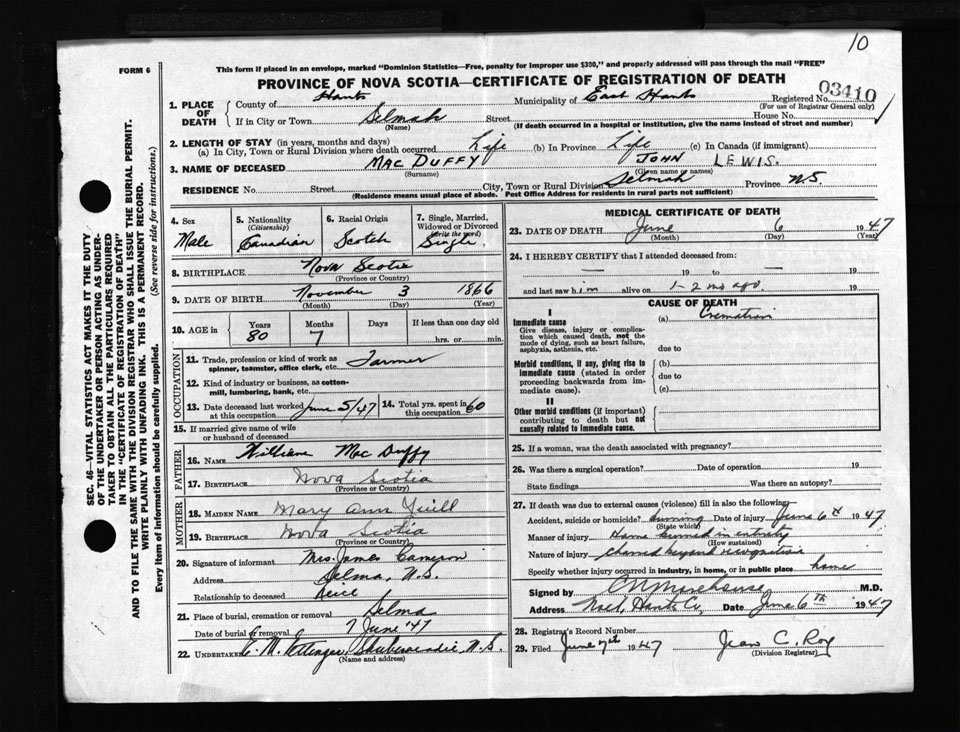 10
FORM 6
This form if placed in an envelope, marked "Dominion Statistics—Free, penalty for improper use $300," and properly addressed will pass through the mail "FREE"
PROVINCE OF NOVA SCOTIA—CERTIFICATE OF REGISTRATION OF DEATH
03410
1. PLACE OF DEATH County of Hants Municipality of East Hants Registered No.
(For use of Registrar General only)
If in City or Town Selmah Street House No.
(Name) (If death occurred in a hospital or institution, give the name instead of street and number)
2. LENGTH OF STAY (in years, months and days)
(a) In City, Town or Rural Division where death occurred Life (b) In Province Life (c) In Canada (if immigrant)
3. NAME OF DECEASED MAC DUFFY JOHN LEWIS.
(Surname) (Given name or names)
RESIDENCE No. Street City, Town or Rural Division Selmah Province N.S.
(Residence means usual place of abode. Post Office Address for residents in rural parts not sufficient)
SEC. 46—VITAL STATISTICS ACT MAKES IT THE DUTY
OF THE UNDERTAKER OR PERSON ACTING AS UNDER-
TAKER TO OBTAIN ALL THE PARTICULARS REQUIRED
IN THE "CERTIFICATE OF REGISTRATION OF DEATH"
AND TO FILE THE SAME WITH THE DIVISION REGISTRAR WHO SHALL ISSUE THE BURIAL PERMIT.
WRITE PLAINLY WITH UNFADING INK. THIS IS A PERMANENT RECORD.
Every item of information should be carefully supplied. (See reverse side for instructions.)
4. Sex Male
5. Nationality (Citizenship) Canadian
6. Racial Origin Scotch
7. Single, Married, Widowed or Divorced (write the word) Single
8. BIRTHPLACE Nova Scotia
(Province or Country)
9. DATE OF BIRTH November 3 1866
(Month) (Day) (Year)
10. AGE in Years Months Days If less than one day old
80 7 hrs. or min.
OCCUPATION
11. Trade, profession or kind of work as spinner, teamster, office clerk, etc. Farmer
12. Kind of industry or business, as cotton-mill, lumbering, bank, etc.
13. Date deceased last worked at this occupation June 5/47
14. Total yrs. spent in this occupation 60
15. If married give name of wife or husband of deceased
FATHER
16. NAME William Mac Duffy
17. BIRTHPLACE Nova Scotia
(Province or Country)
MOTHER
18. MAIDEN NAME Mary Ann Yuill
19. BIRTHPLACE Nova Scotia
(Province or Country)
20. Signature of informant Mrs. James Cameron
Address Selma, N.S.
Relationship to deceased Neice
21. Place of burial, cremation or removal Selma
Date of burial or removal 7 June '47
22. UNDERTAKER Shubenacadie, N.S.
(Name and address)
MEDICAL CERTIFICATE OF DEATH
23. DATE OF DEATH June 6 1947
(Month) (Day) (Year)
24. I HEREBY CERTIFY that I attended deceased from:
— 19 to — 19
and last saw him alive on 1-2 mo ago. 19
CAUSE OF DEATH
I
Immediate cause (a) Cremation
Give disease, injury or complication which caused death, not the mode of dying, such as heart failure, asphyxia, asthenia, etc. due to
Morbid conditions, if any, giving rise to immediate cause (stated in order proceeding backwards from immediate cause). (b)
due to
(c)
II
Other morbid conditions (if important) contributing to death but not causally related to immediate cause.
25. If a woman, was the death associated with pregnancy?
26. Was there a surgical operation? Date of operation 19
State findings Was there an autopsy?
27. If death was due to external causes (violence) fill in also the following:
Accident, suicide or homicide? burning Date of injury June 6th 1947
(State which)
Manner of injury Home burned in entirety
(How sustained)
Nature of injury charred beyond recognition
Specify whether injury occurred in industry, in home, or in public place home
Signed by M.D.
Address Noel, Hants Co, Date June 6th 1947
28. Registrar's Record Number
29. Filed June 7th 1947 Jean C. Roy
(Division Registrar)